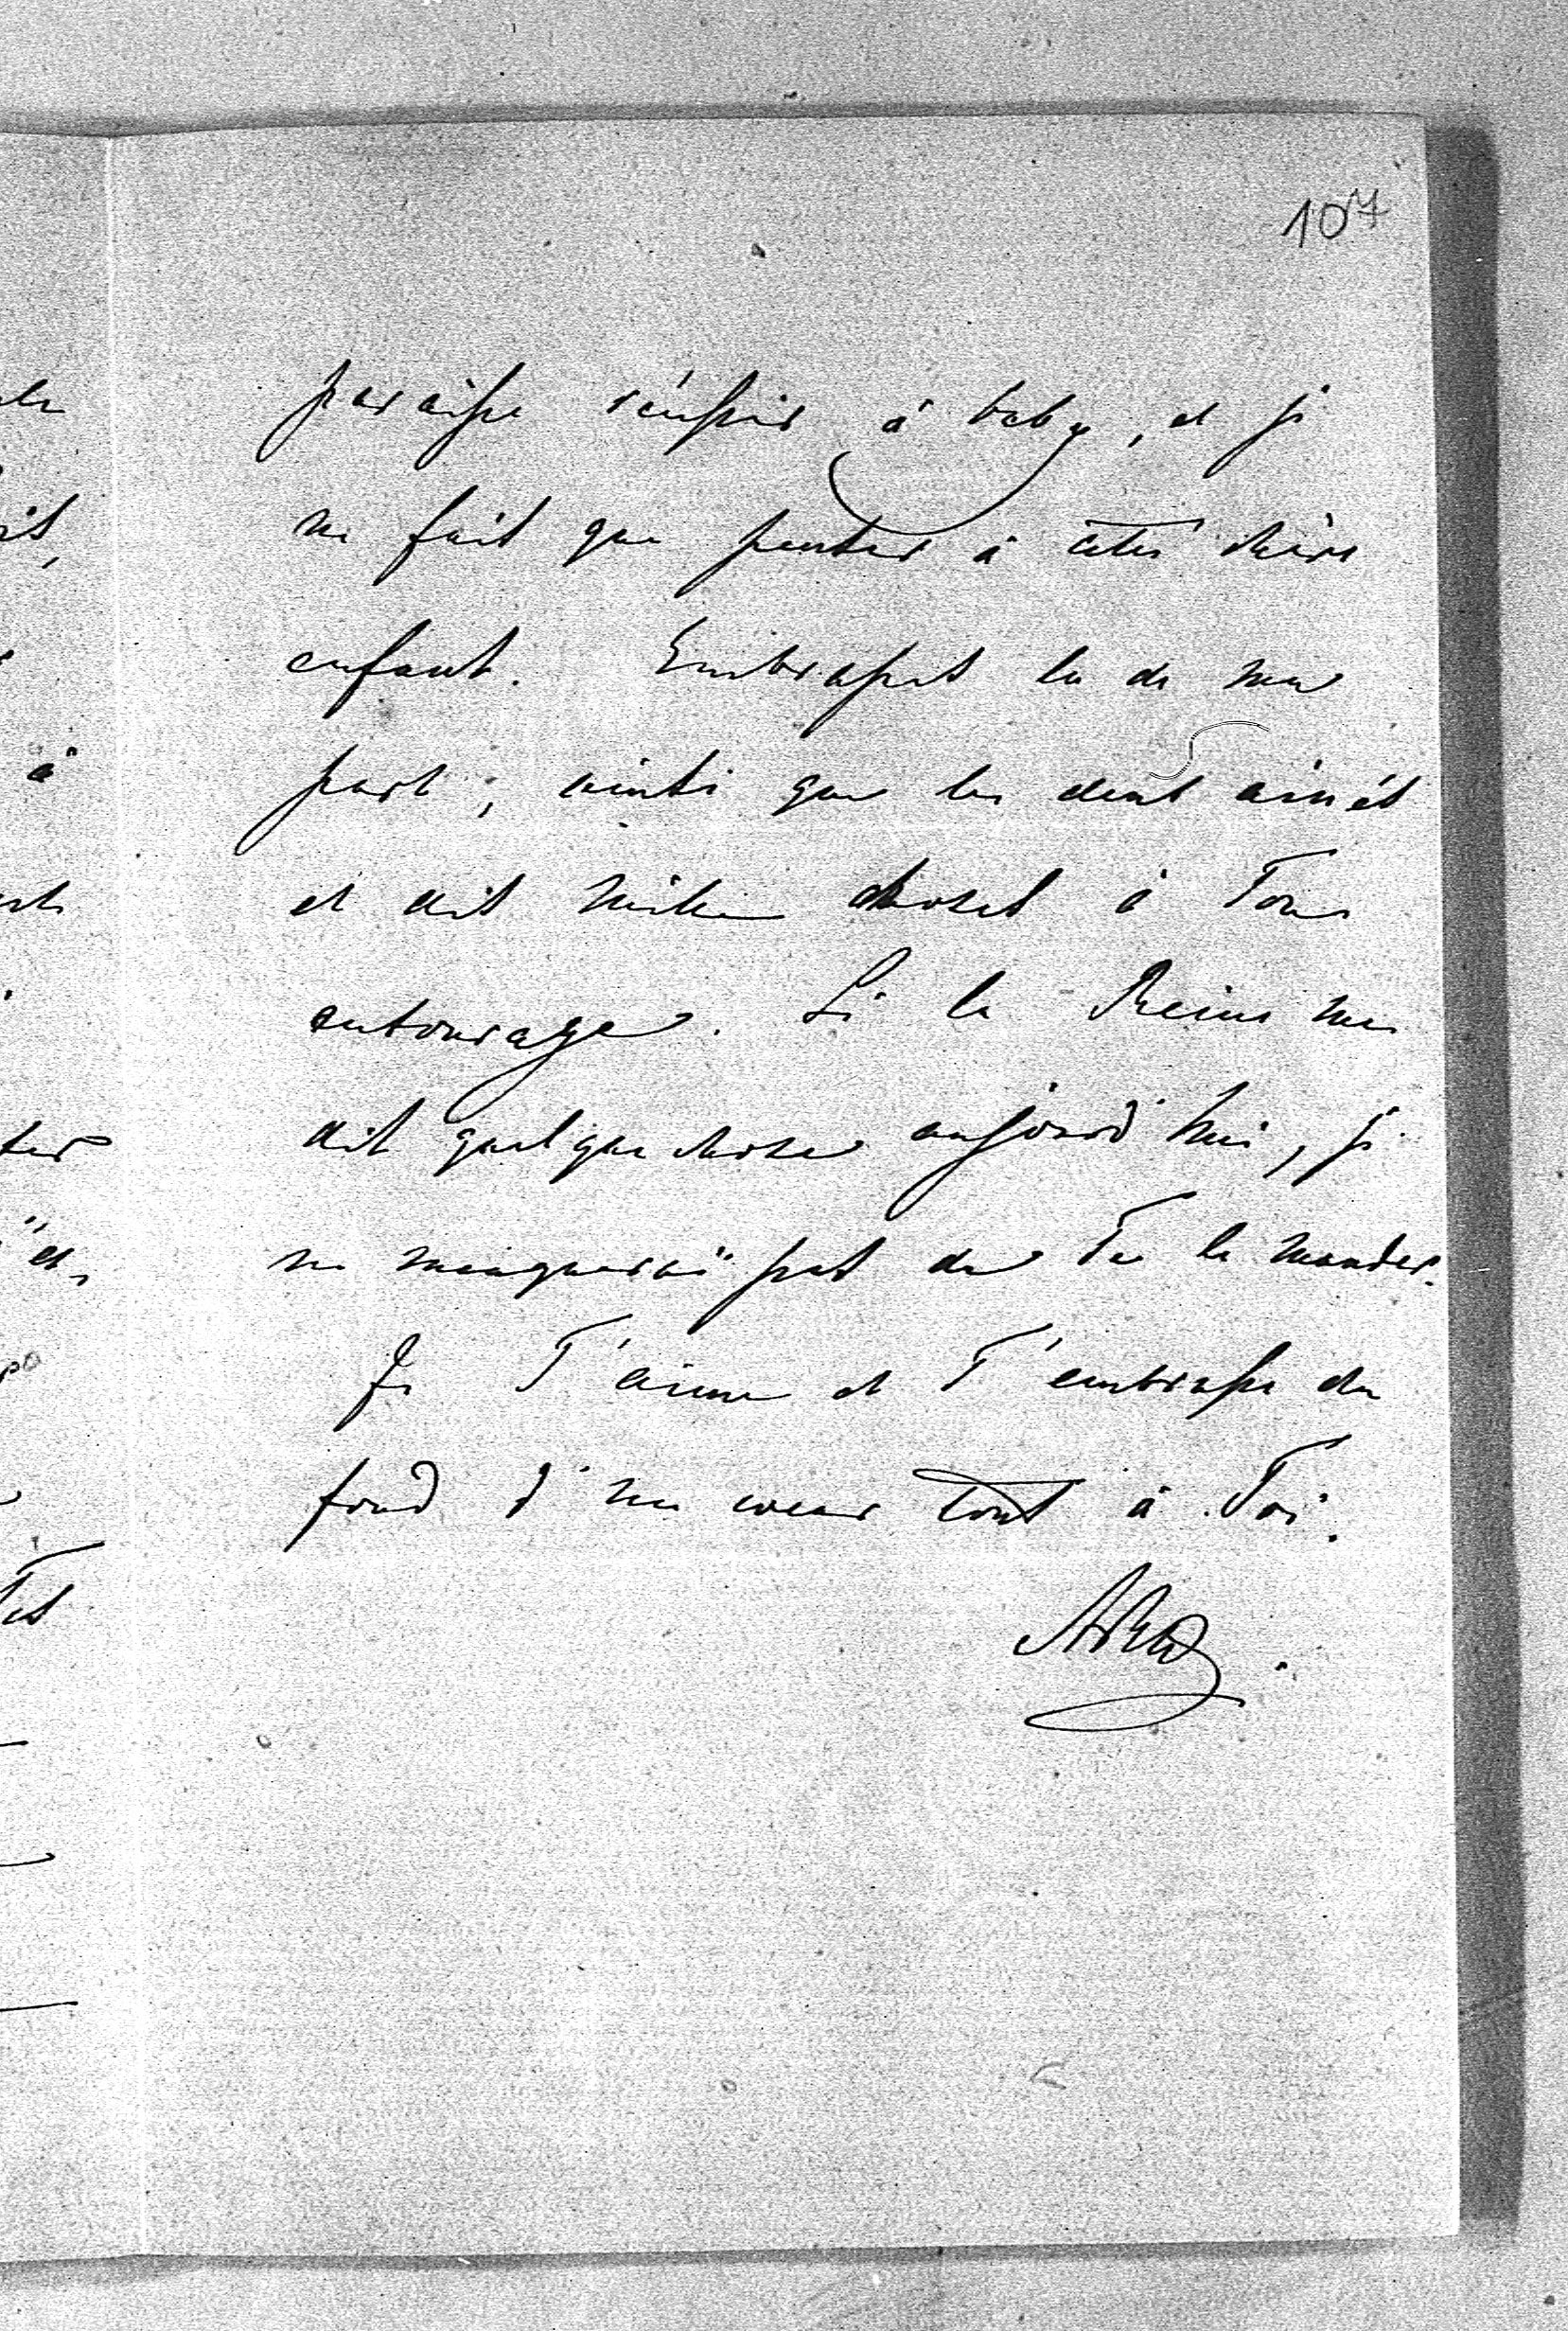 107
paraisse réussir à baby, et je
ne fait que penser à cette chère
enfant. Embrasses la de ma
part, ainsi que les deux ainés
et dis mille choses à Ton
entourage. Si la Reine me
dit quelque chose aujourd'hui, je
ne manquerai pas de Te le mander.
Je T'aime et T'embrasse du
fond d'un coeur tout à Toi.